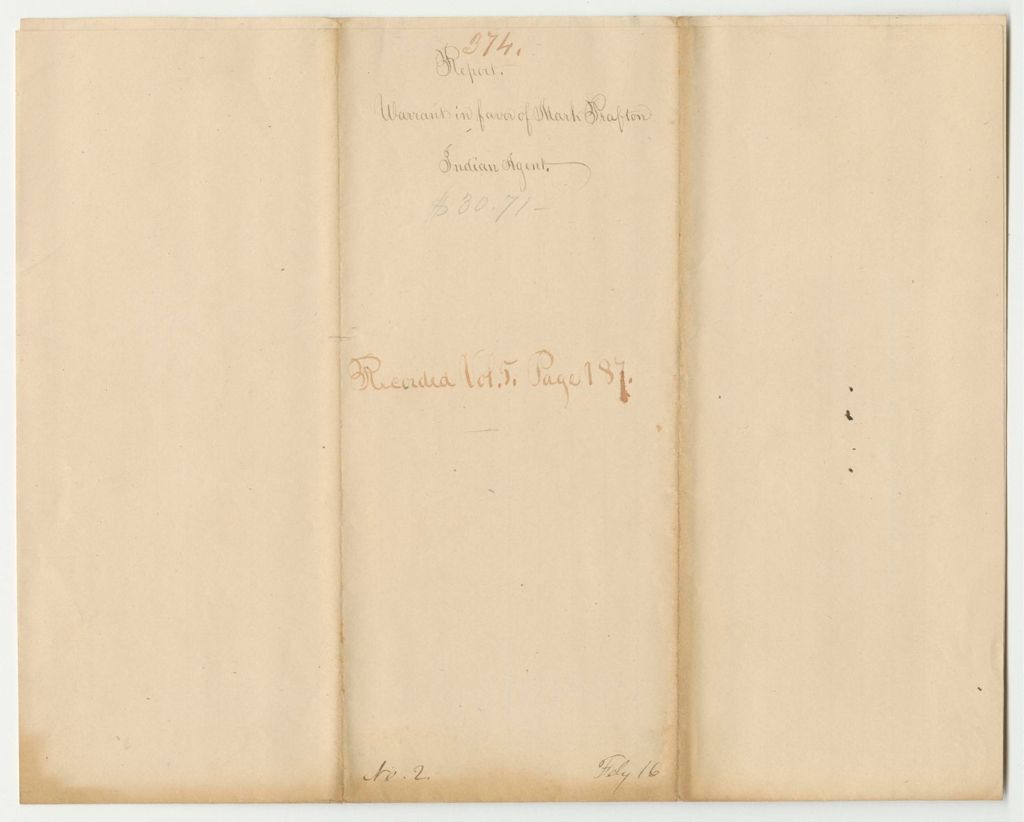 374.
Report.
Warrant in favor of Mark Trafton
Indian Agent.
$30.71-
Recorded Vol. 5. Page 187.
No. 2.
Feby 16